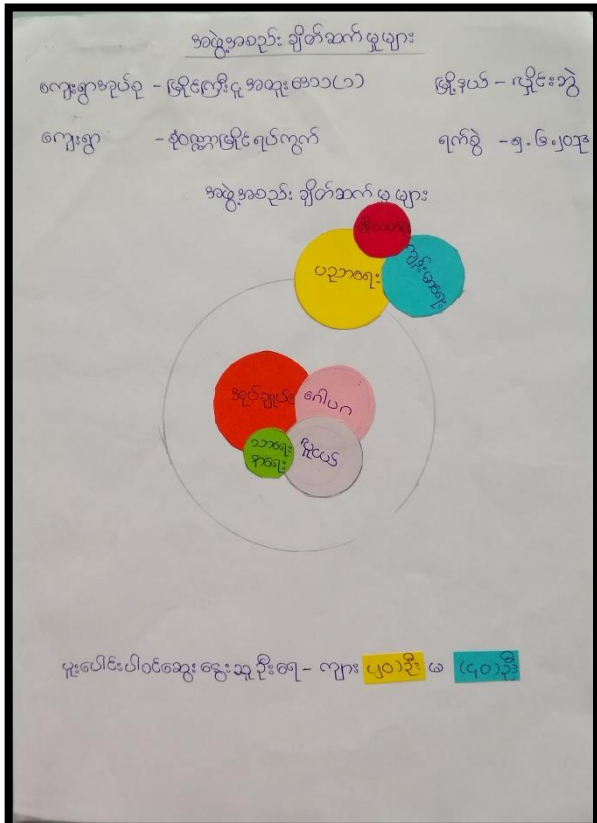 အဖွဲ့အစည်း ချိတ်ဆက်မှုများ
ကျေးရွာအုပ်စု - မြိုင်ကြီးငူ အထူးဒေသ(၁) မြို့နယ် - လှိုင်းဘွဲ
ကျေးရွာ - စုံဝဏ္ဏမြိုင်ရပ်ကွက် ရက်စွဲ - ၅.၆.၂၀၁၃
အဖွဲ့အစည်း ချိတ်ဆက်မှုများ
ပညာရေး
ကျန်းမာရေး
အုပ်ချုပ်ရေး
ဂေါပက
သာရေး
နာရေး
ပူးပေါင်းပါဝင်ဆွေးနွေးသူဦးရေ - ကျား (၂၀)ဦး မ (၄၀)ဦး